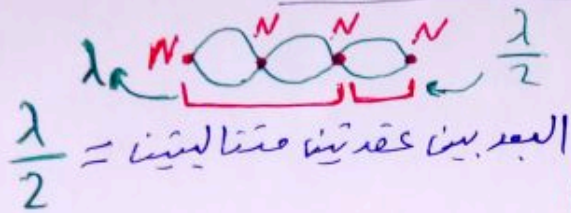 N N N N
λ λ/2
البعد بين عقدتين متتاليتين = λ/2